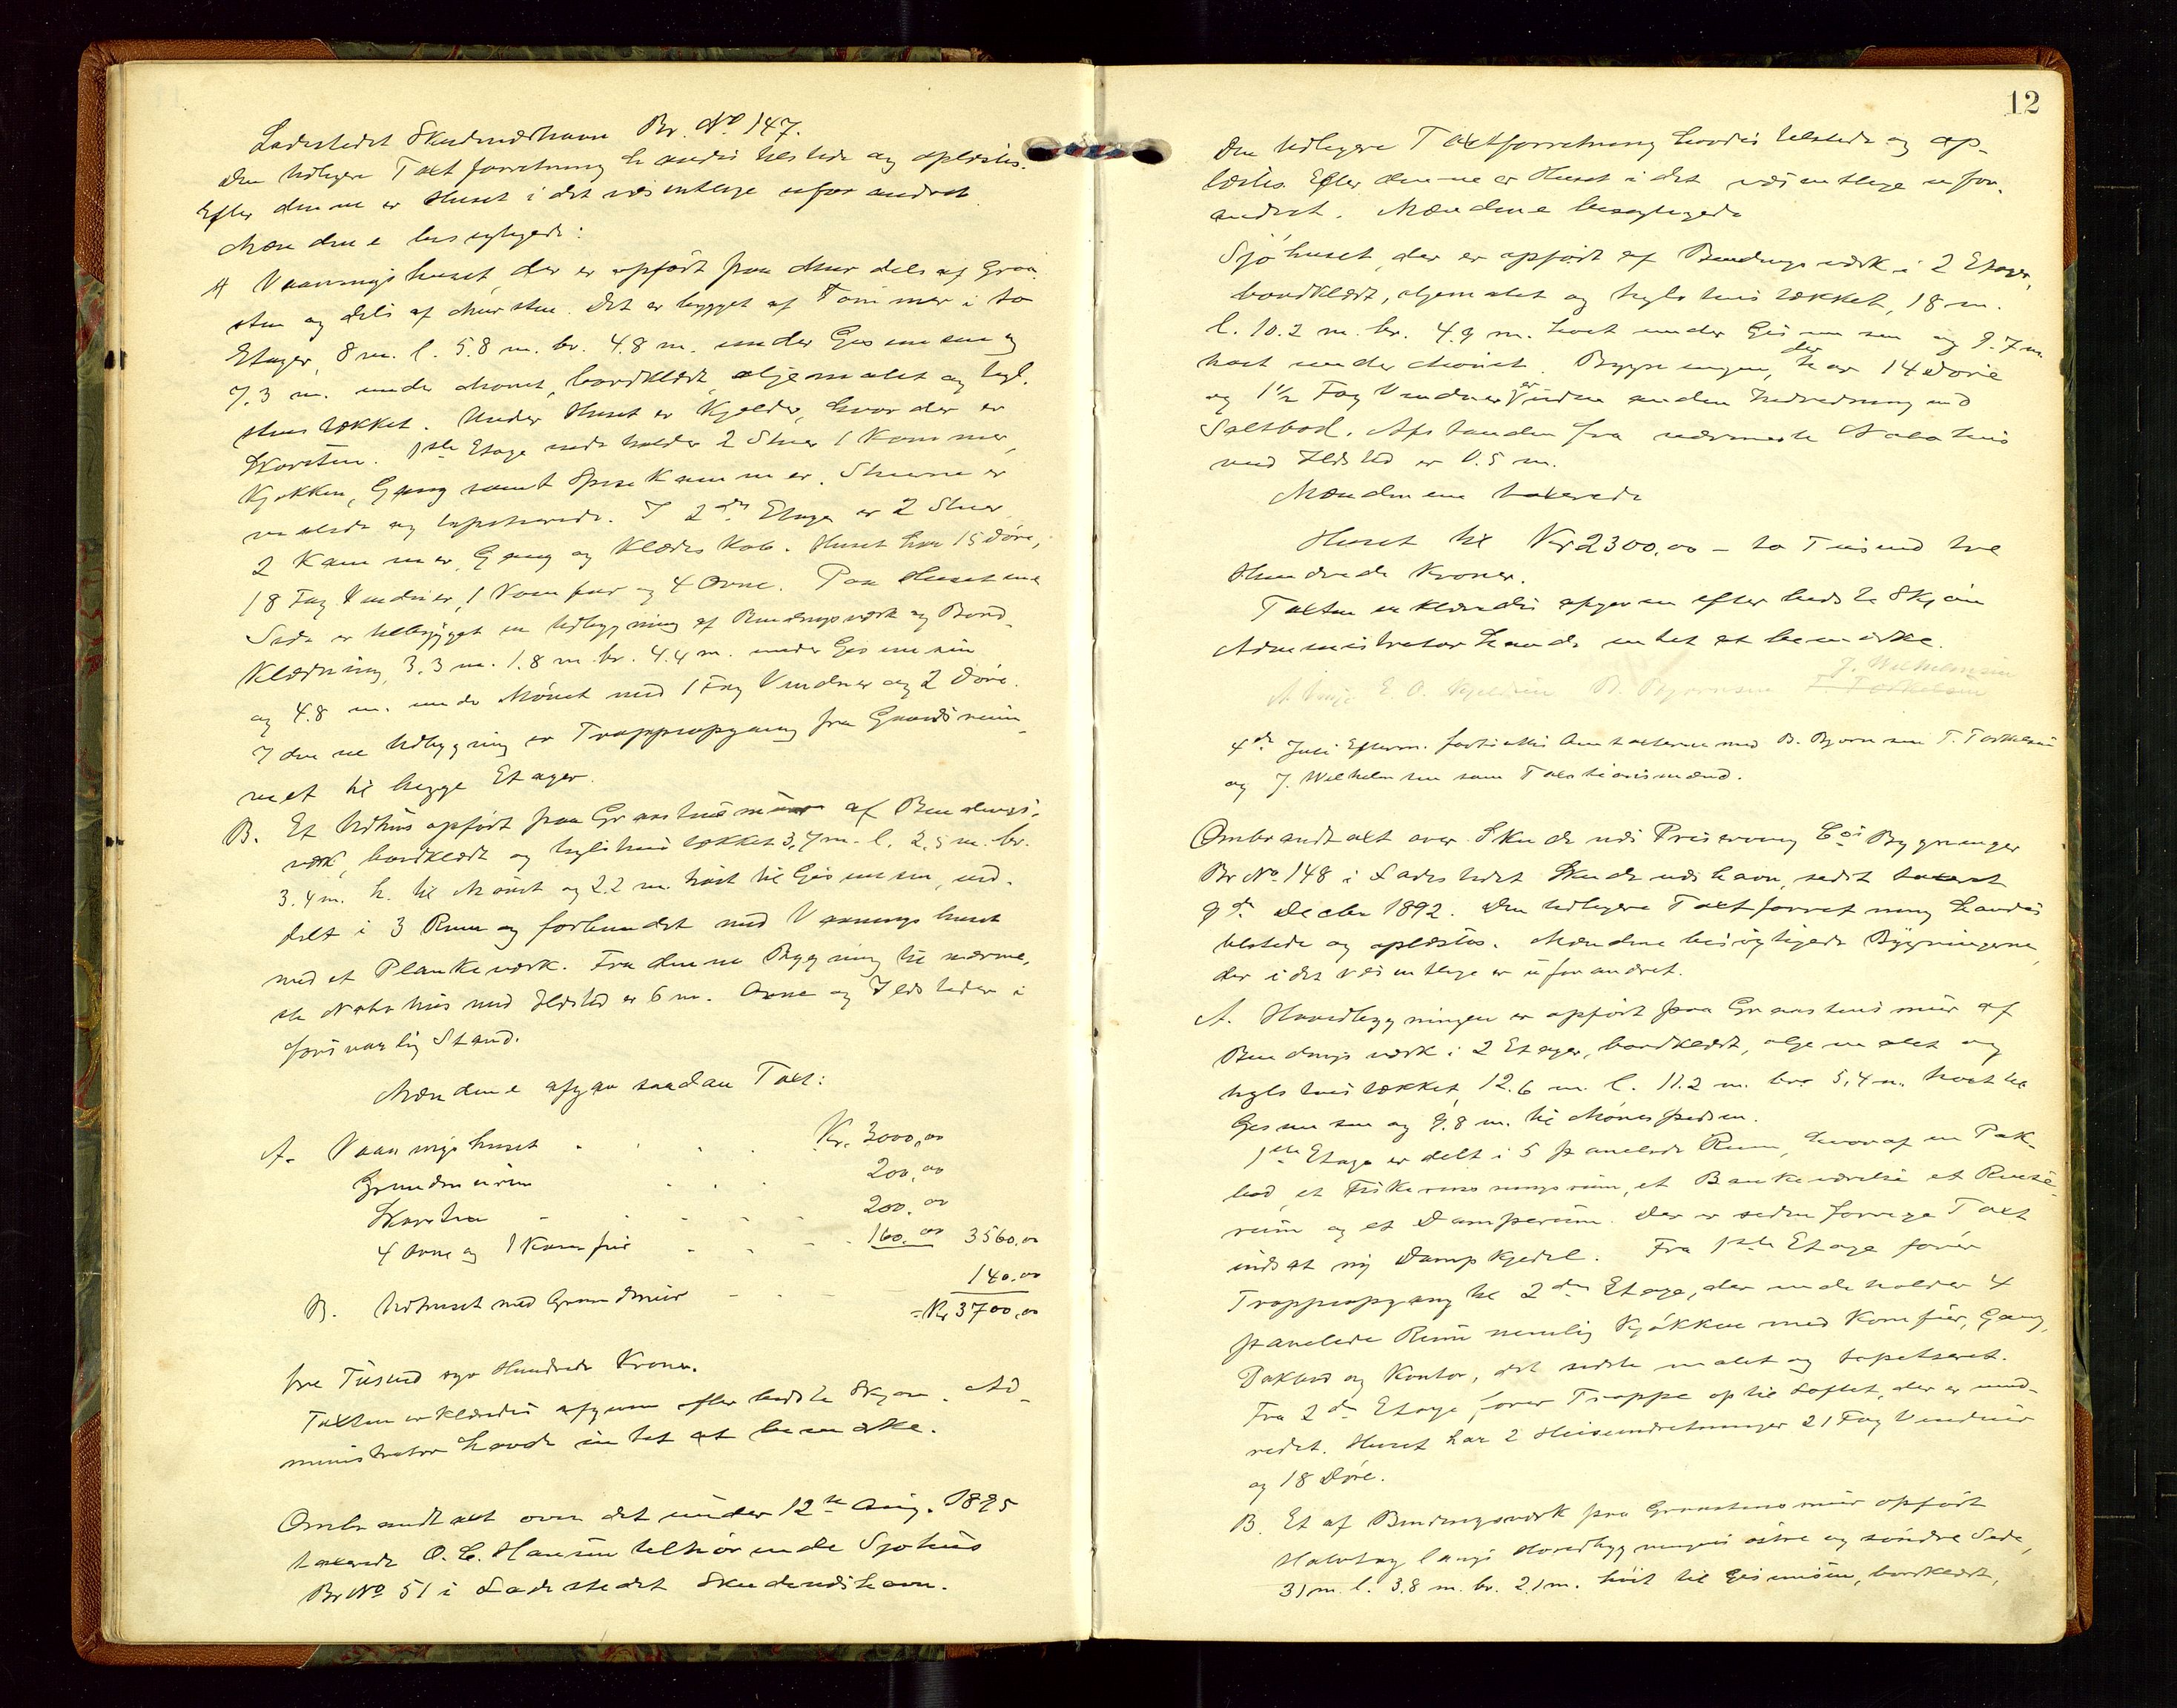 Ladestedet Skudneshavn Br. No 147.
Den tidligere Taxtforretning havdes tilstede og oplæstes.
Efter denne er Huset i det væsentlige uforandret.
Mændene besigtigede:
A Vaaningshuset, der er opført paa Mur dels af Graa-
sten og dels af Mursten. Det er bygget af Tømmer i to
Etager, 8 m. l. 5.8 m. br. 4.8 m. under Gesimsen og
7.3 m. under Mønet, bordklædt, oljemalet og tegl-
stenstækket. Under Huset er Kjelder, hvor der er
Skorsten. 1ste Etage indeholder 2 Stuer 1 Kammer,
Kjøkken, Gang samt Spisekammer. Stuerne er
malede og tapetserede. I 2den Etage er 2 Stuer
2 Kammer, Gang og Klædeskab. Huset har 15 Døre,
18 Fag Vinduer, 1 Komfur og 4 Ovne. Paa Husets ene
Side er tilbygget en Udbygning af Bindingsværk og Bord-
klædning, 3.3 m. 1.8 m. br. 4.4 m. under Gesimsen
og 4.8 m. under Mønet med 1 Fag Vinduer og 2 Døre.
I denne Udbygning er Trappeopgang fra Gaards
til begge Etager.
B. Et Udhus opført paa Graastensmur af Bindings-
værk, bordklædt og teglstenstækket 3,7 m. l. 2,5 m. br.
3.4 m. h. til Mønet og 2.2 m. høit til Gesimsen, ind-
delt i 3 Rum og forbundet med Vaaningshuset
med et Plankeværk. Fra denne Bygning til nærme-
ste Nabohus med Ildsted er 6 m. Ovne og Ildsteder i
forsvarlig Stand.
Mændene afgav saadan Taxt:
A. Vaaningshuset . . . . Kr. 3000,00
Grundmuren . . . 200,00
Skorsten - . . . . 200,00
4 Ovne og 1 Komfur . . . . 160,00 3560,00
B. Udhuset med Grundmur - . . 140,00
= Kr 3700,00
tre Tusind syv Hundrede Kroner.
Taxten erklæredes afgiven efter bedste Skjøn. Ad-
ministrator havde intet at bemærke.
Ombrandtaxt over det under 12te Aug. 1895
taxerede O. C. Hansen tilhørende Sjøhus
Br No 51 i Ladestedet Skudeneshavn.
12
Den tidligere Taxtforretning havdes tilstede og op-
læstes. Efter denne er Huset i det væsentlige ufor-
andret. Mændene besigtigede
Sjøhuset, der er opført af Bindingsværk i 2 Etager,
bordklædt, oljemalet og teglstenstækket, 18 m.
l. 10.2 m. br. 4.9 m. høit under Gesimsen og 9.7 m.
høit under Mønet. Bygningen, der har 14 Døre
og 1½ Fag Vinduer er uden anden Indredning end
Saltbod. Afstanden fra nærmeste Nabohus
med Ildsted er 0.5 m.
Mændene taxerede
Huset til Kr 2300,00 - to Tusind tre
Hundrede Kroner.
Taxten erklæredes afgiven efter bedste Skjøn
Administrator havde intet at bemærke.
J. Wilhelmsen
E. O. Kjeldsen B. Bjørnsen T. Torkelsen
4de Juli Efterm. fortsattes Omtaxterne med B. Bjørnsen T. Torkelsen
og J. Wilhelmsen som Taxationsmænd.
Ombrandtaxt over Skudenæs Preserving Cos Bygninger
Br No 148 i Ladestedet Skudenæshavn, sidst taxeret
9de Decbr 1892. Den tidligere Taxtforretning havdes
tilstede og oplæstes. Mændene besigtigede Bygningerne,
der i det væsentlige er uforandret.
A. Hovedbygningen er opført paa Graastensmur af
Bindingsværk i 2 Etager, bordklædt, oljemalet og
teglstenstækket, 12.6 m. l. 11.2 m. br. 5,4 m. høit til
Gesimsen og 9,8 m. til Mønespidsen.
1ste Etage er delt i 5 panelede Rum, hvoraf en Pak-
bod, et et et
rum og et Damperum. Der er siden forrige Taxt
indsat ny Dampkjedel. Fra 1ste Etage fører
Trappeopgang til 2den Etage, der indeholder 4
panelede Rum nemlig Kjøkken med Komfur, Gang,
Pakbod og Kontor, det sidste malet og tapetseret.
Fra 2den Etage fører Trappe op til Loftet, der er uind-
redet. Huset har 2 Heiseindretninger 21 Fag Vinduer
og 18 Døre.
B. Et af Bindingsværk paa Graastensmur opført
Halvtag langs Hovedbygningens østre og søndre Side,
31 m. l. 3.8 m. br. 2.1 m. høit til Gesimsen, bordklædt,